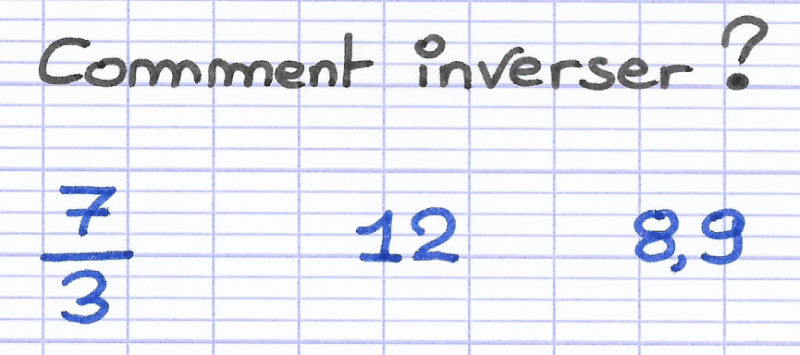 Comment inverser ?
7/3 12 8,9